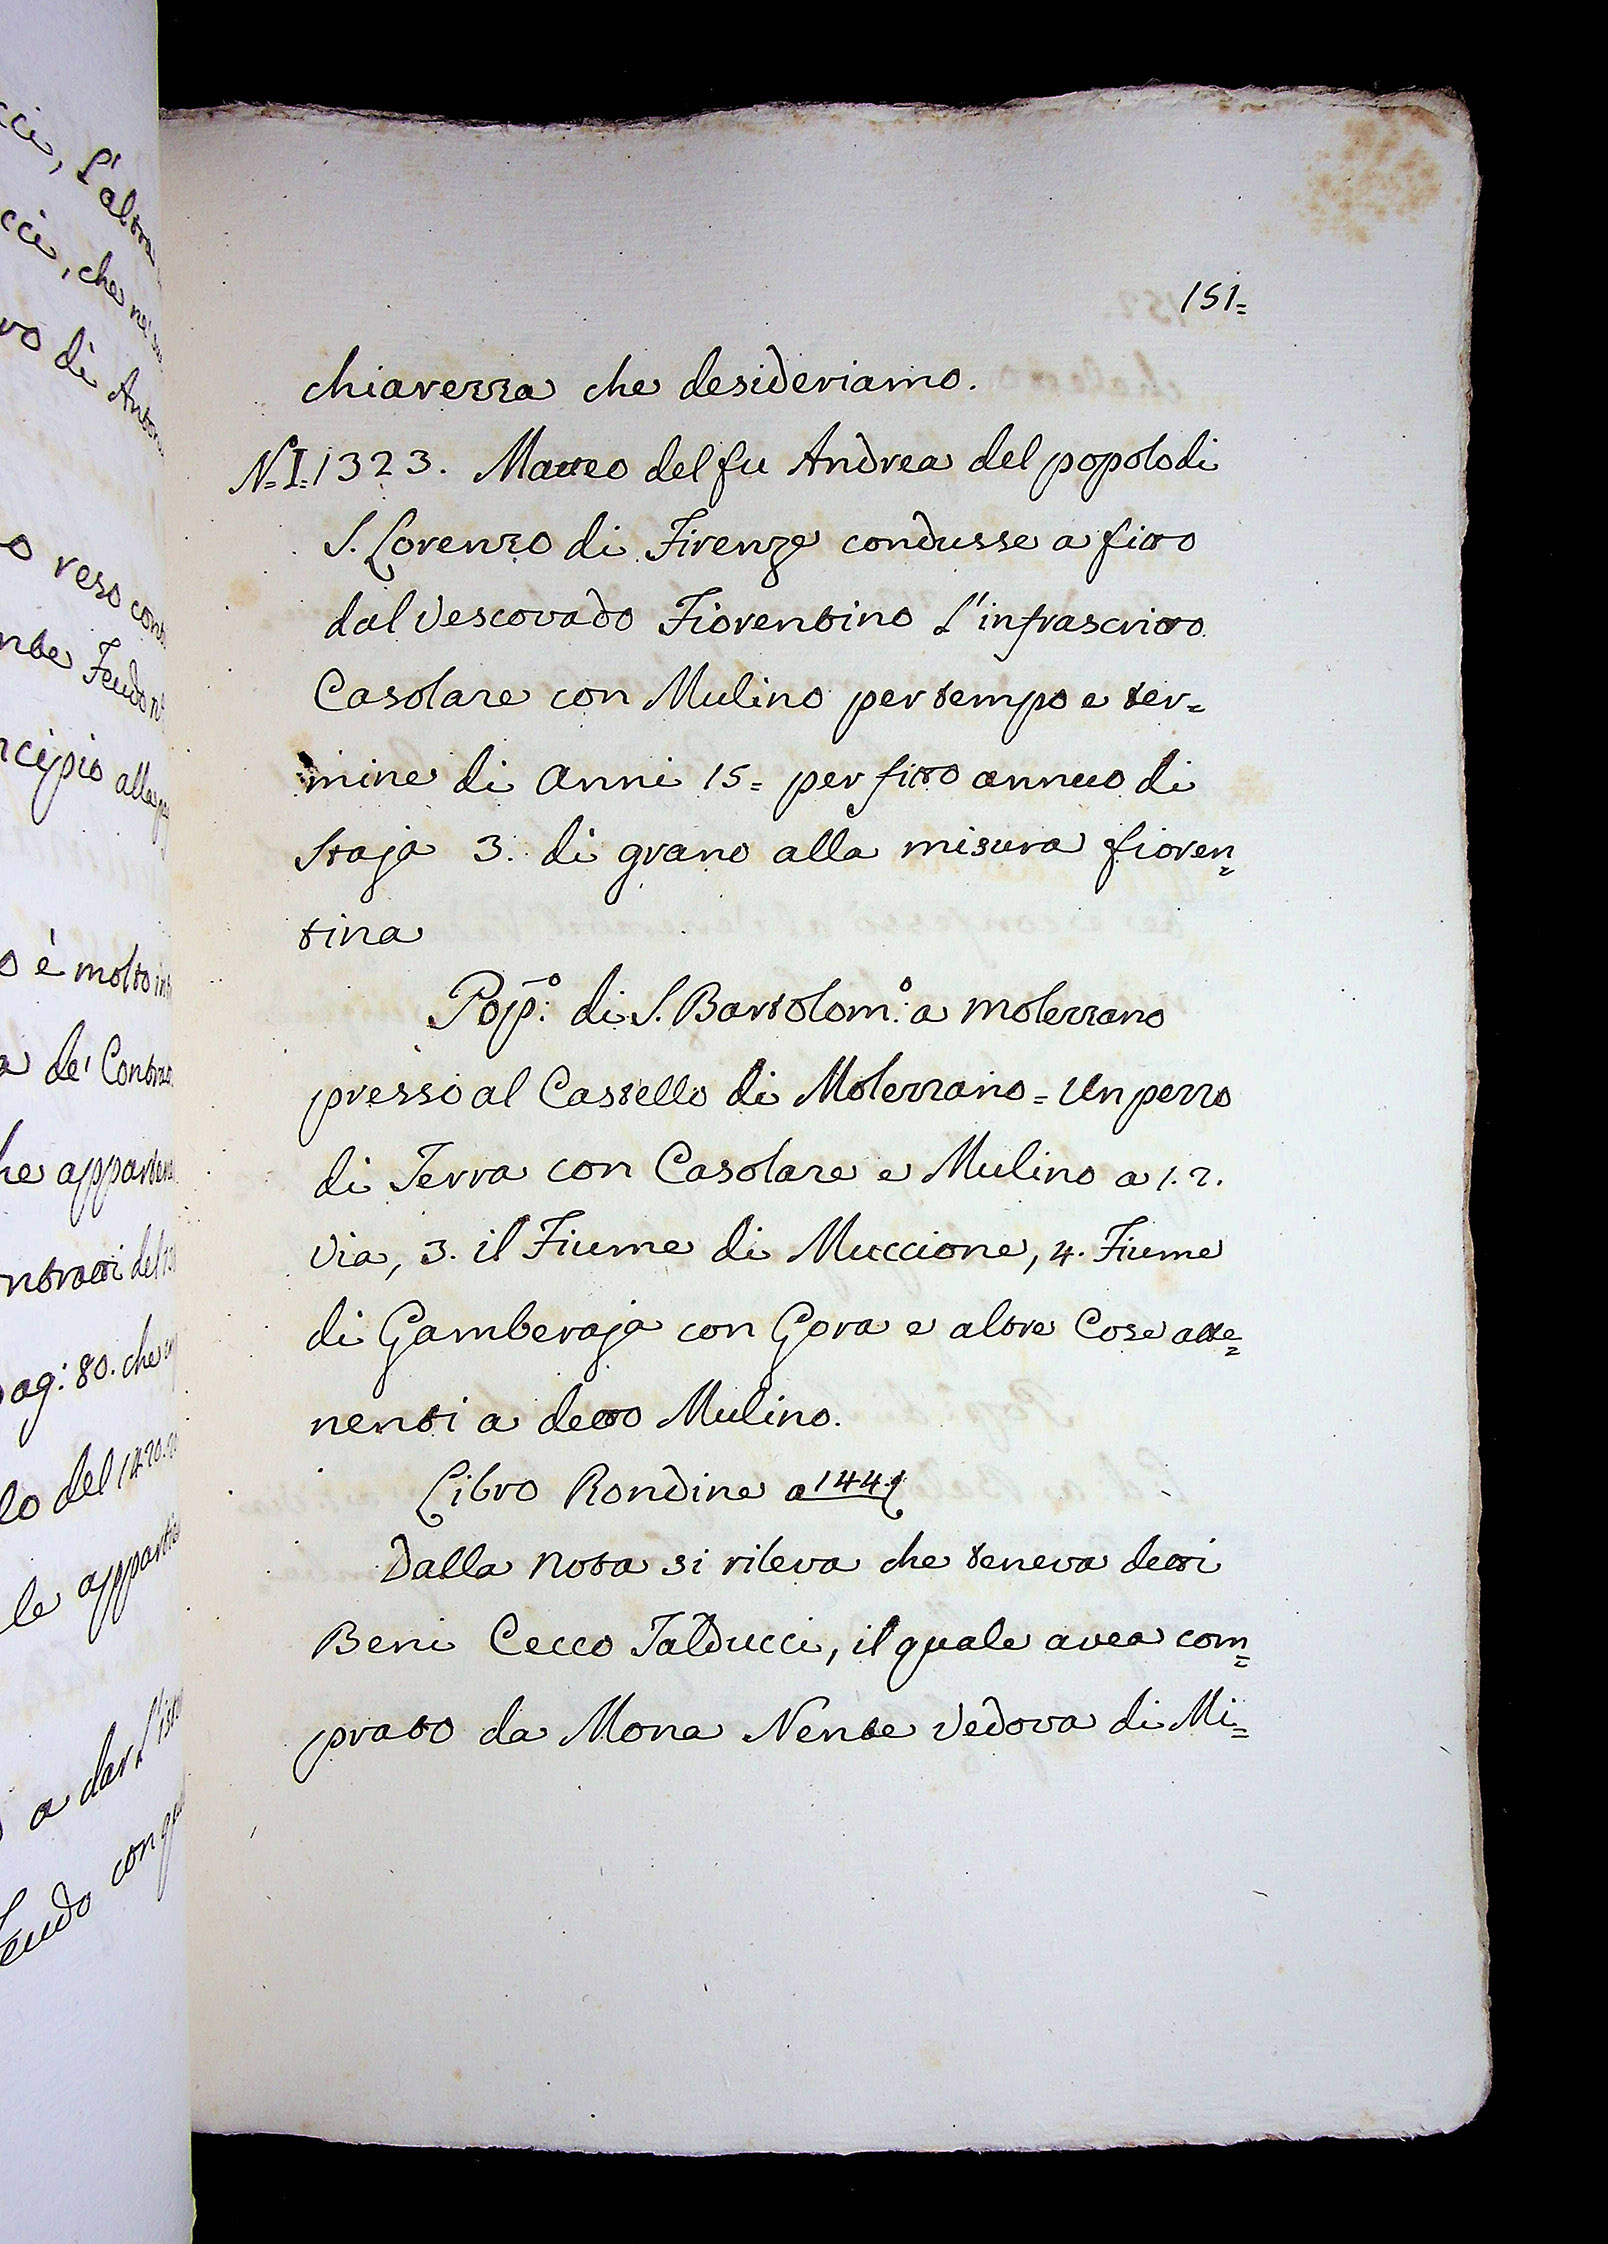 151=
chiarezza che desideriamo.
N=I=1323. Matteo del fu Andrea del popolo di
S. Lorenzo di Firenze condusse a fitto
dal Vescovado Fiorentino l'infrascritto
Casolare con Mulino per tempo e ter=
mine di Anni 15= per fitto annuo di
Staja 3. di grano alla misura fioren=
tina
Pop̃.º di S. Bartolom.º a Molezzano
presso al Castello di Molezzano = Un pezzo
di Terra con Casolare e Mulino a 1. 2.
Via, 3. il Fiume di Muccione, 4. Fiume
di Gamberaja con Gora e altre Cose atte=
nenti a detto Mulino.
Libro Rondine a 144
Dalla Nota si rileva che teneva detti
Beni Cecco Talducci, il quale avea com=
prato da Mona Nente Vedova di Mi=
l'altra
che
vo di
reso
Feudo
ncipio
è molto
de'
ag: 80. che
lo del 1420.
le
a dar
con